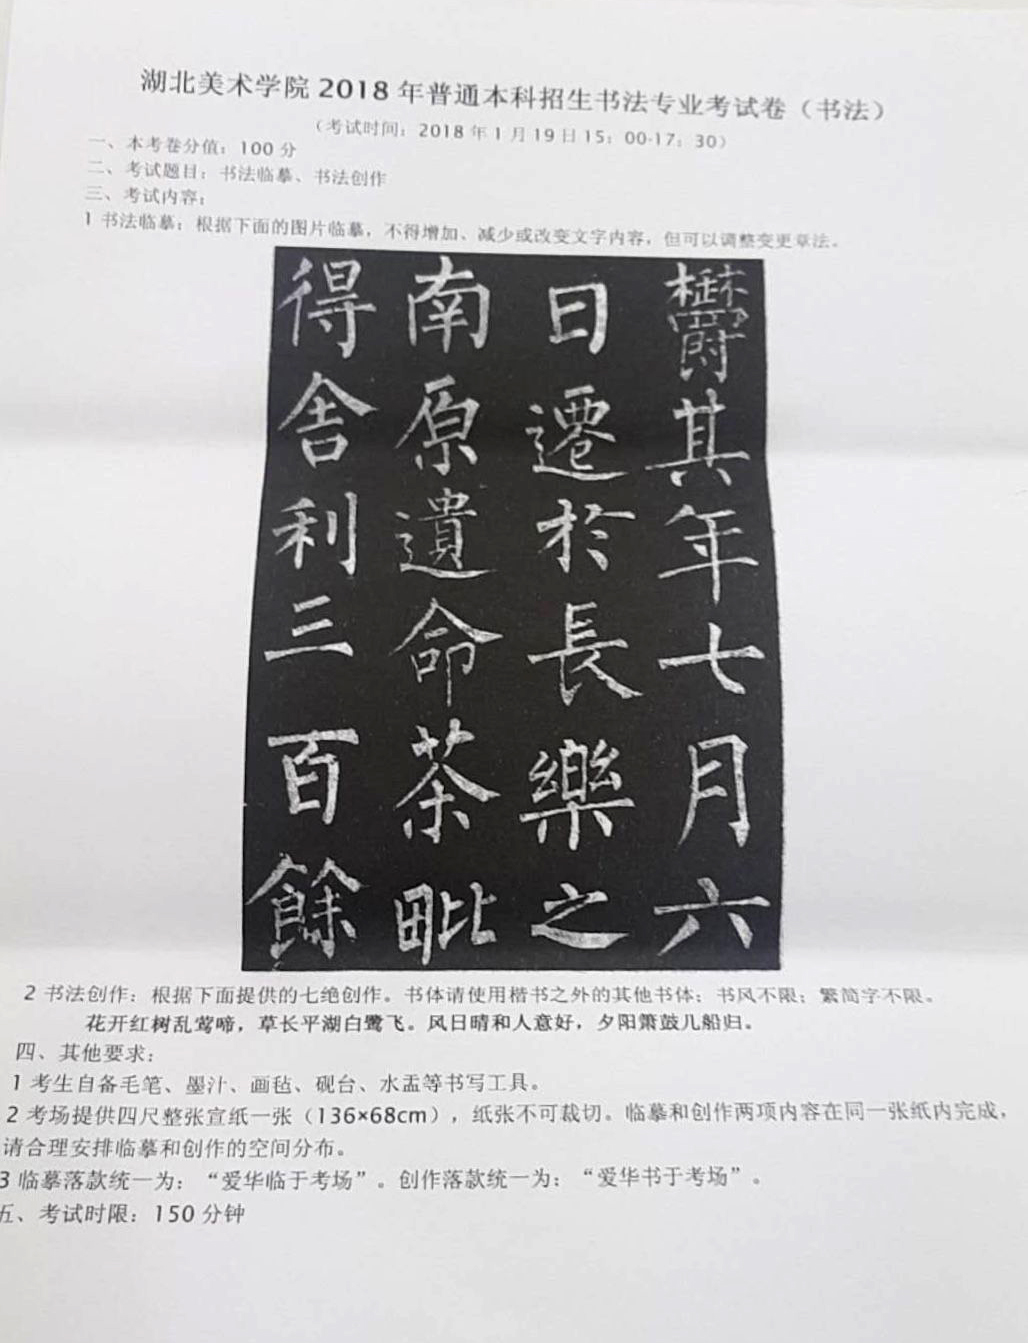 湖北美术学院 2018 年普通本科招生书法专业考试卷（书法）
（考试时间：2018 年 1 月 19 日 15：00-17：30）
一、本考卷分值：100 分
二、考试题目：书法临摹、书法创作
三、考试内容：
1 书法临摹：根据下面的图片临摹，不得增加、减少或改变文字内容，但可以调整变更章法。
欝其年七月六
日遷於長樂之
南原遺命茶毗
得舍利三百餘
2 书法创作：根据下面提供的七绝创作。书体请使用楷书之外的其他书体；书风不限；繁简字不限。
花开红树乱莺啼，草长平湖白鹭飞。风日晴和人意好，夕阳箫鼓几船归。
四、其他要求：
1 考生自备毛笔、墨汁、画毡、砚台、水盂等书写工具。
2 考场提供四尺整张宣纸一张（136×68cm），纸张不可裁切。临摹和创作两项内容在同一张纸内完成，
请合理安排临摹和创作的空间分布。
3 临摹落款统一为：“爱华临于考场”。创作落款统一为：“爱华书于考场”。
五、考试时限：150 分钟